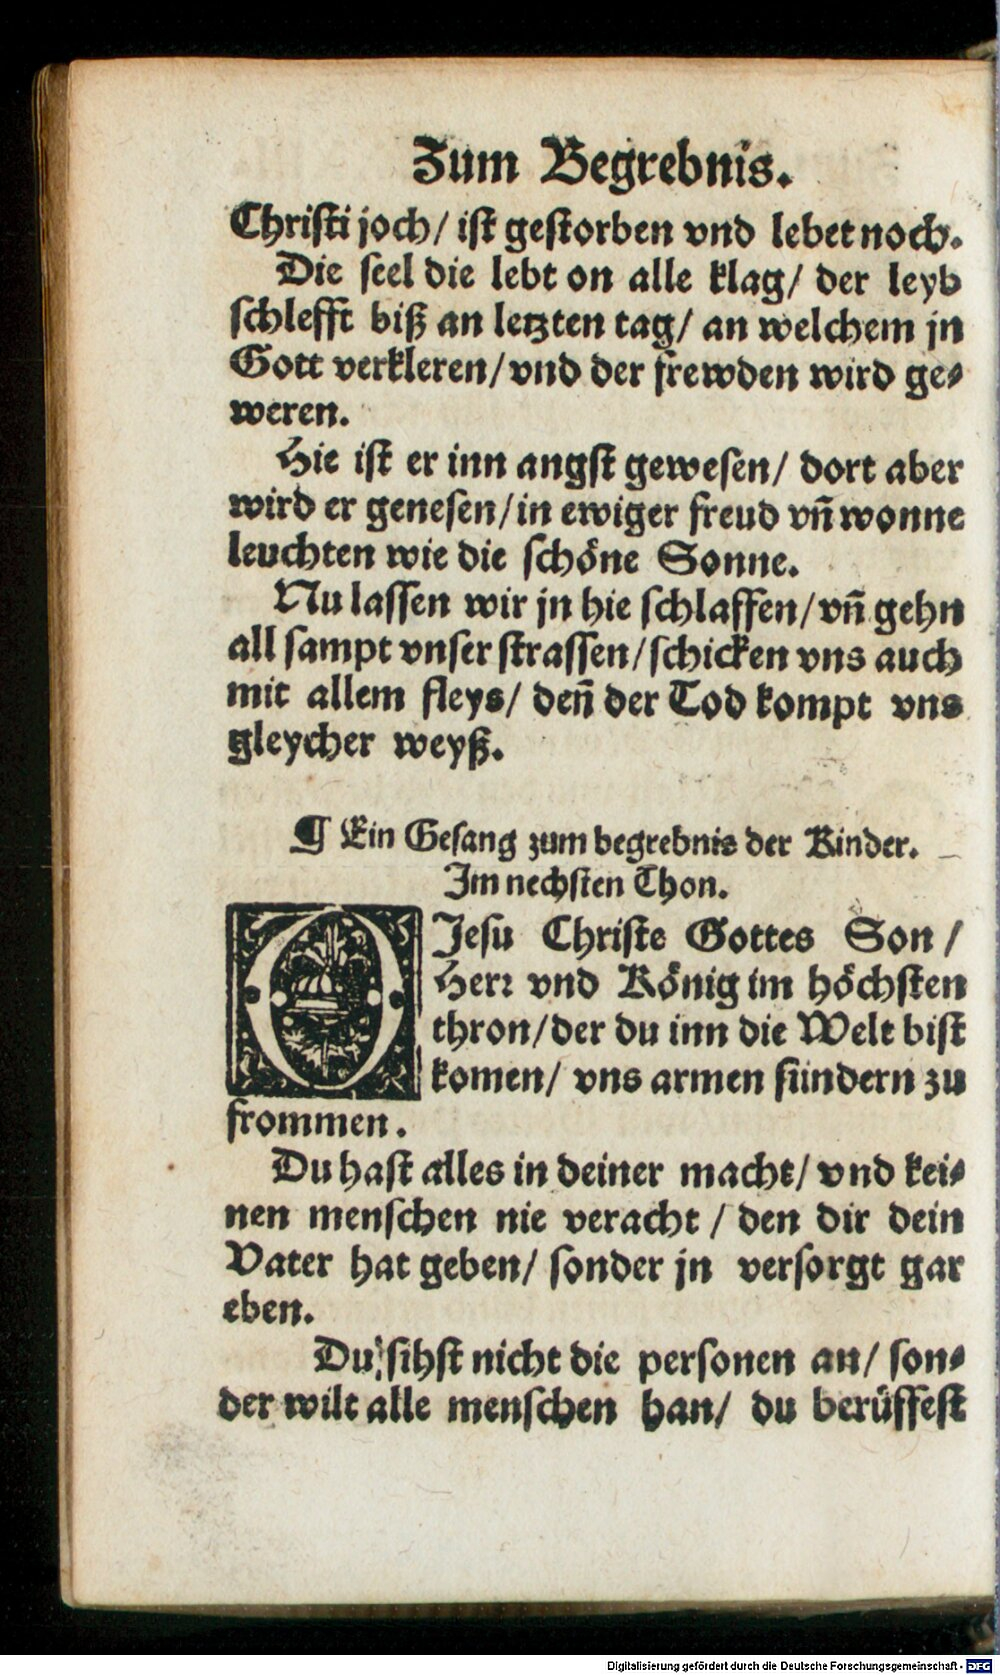 Zum Begrebnis.
Christi joch/ ist gestorben vnd lebet noch.
Die seel die lebt on alle klag/ der leyb
schlefft biß an letzten tag/ an welchem jn
Gott verkleren/ vnd der frewden wird ge⸗
weren.
Hie ist er inn angst gewesen/ dort aber
wird er genesen/ in ewiger freud vñ wonne
leuchten wie die schöne Sonne.
Nu lassen wir jn hie schlaffen/ vñ gehn
all sampt vnser strassen/ schicken vns auch
mit allem fleys/ deñ der Tod kompt vns
gleycher weyß.
¶ Ein Gesang zum begrebnis der Kinder.
Im nechsten Thon.
O Jesu Christe Gottes Son/
Herr vnd König im höchsten
thron/ der du inn die Welt bist
komen/ vns armen sündern zu
frommen.
Du hast alles in deiner macht/ vnd kei⸗
nen menschen nie veracht/ den dir dein
Vater hat geben/ sonder jn versorgt gar
eben.
Du sihst nicht die personen an/ son⸗
der wilt alle menschen han/ du berüffest
Digitalisierung gefördert durch die Deutsche Forschungsgemeinschaft - DFG